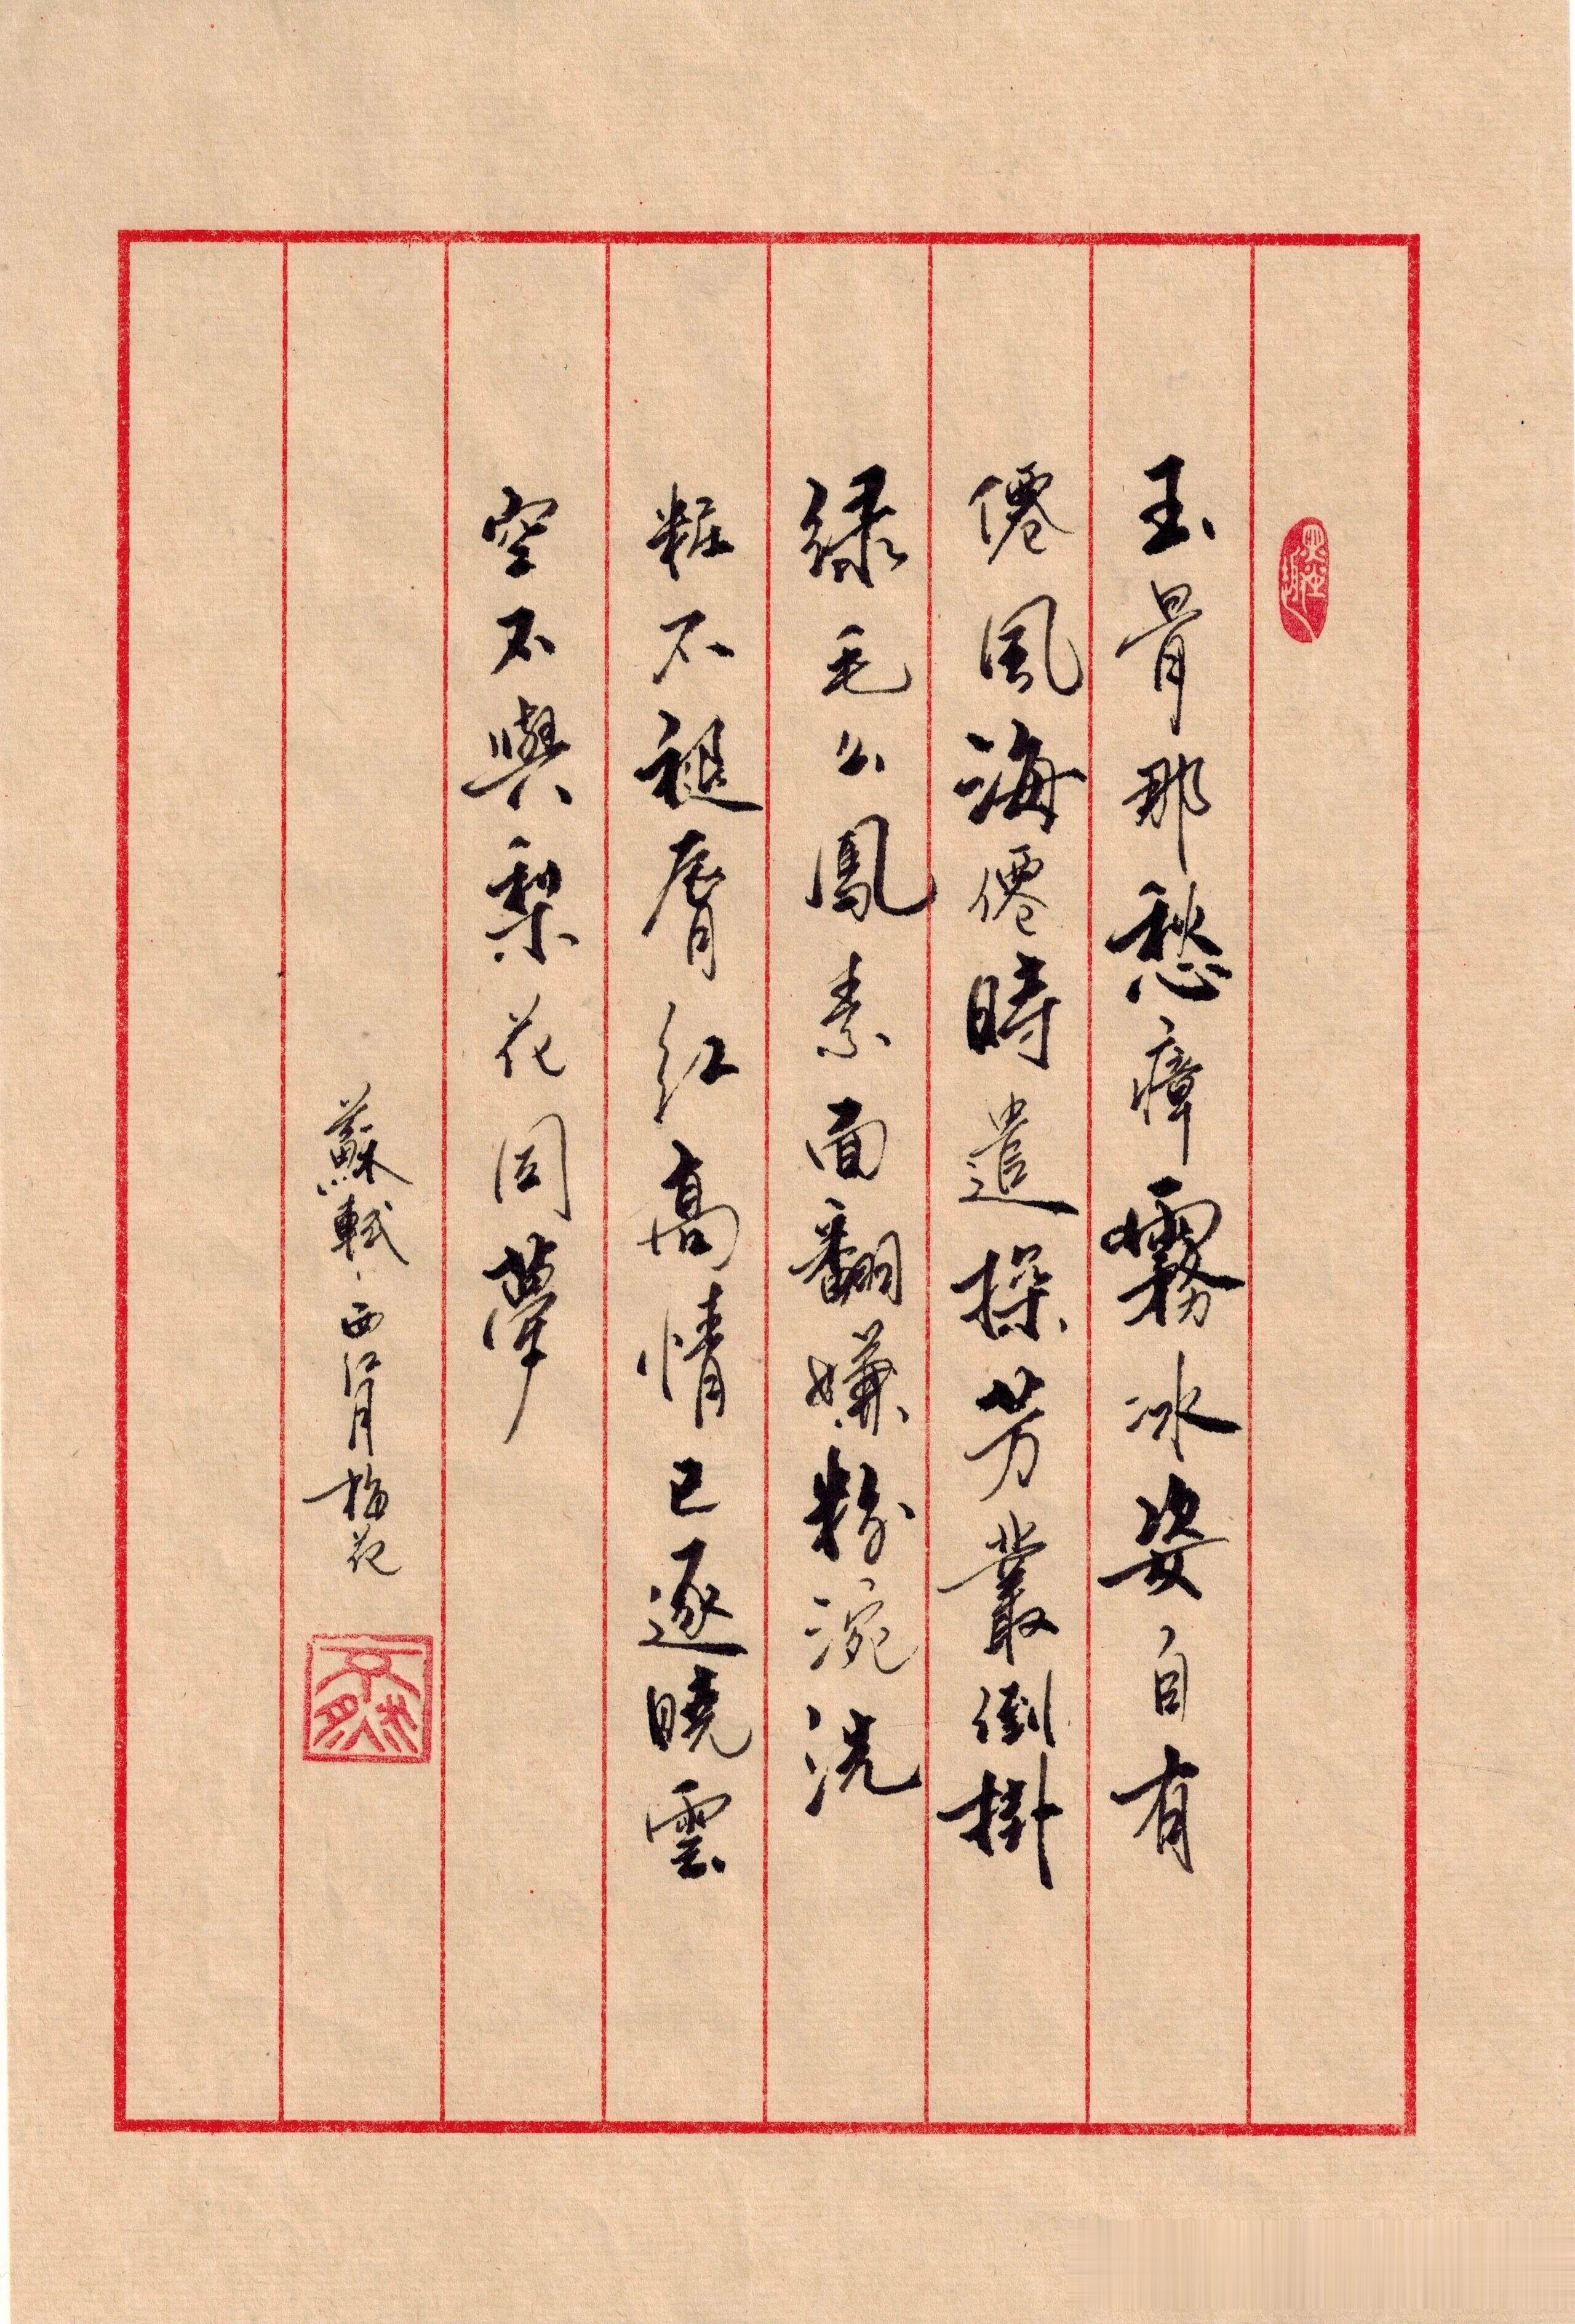 玉骨那愁瘴霧冰姿自有
僊風海僊時遣探芳叢倒掛
緑毛幺鳳素面翻嫌粉涴洗
粧不褪脣紅高情已逐曉雲
空不與梨花同夢
蘇軾、西江月梅花